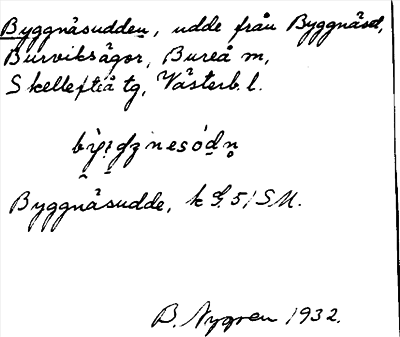 Byggnäsudden, udde från Byggnäsd,
Burviksägor, Bureå m,
Skellefteå tg, Västerb. l.
Byggnäsudde, k G. 51 S.M.
B. Nygren 1932.